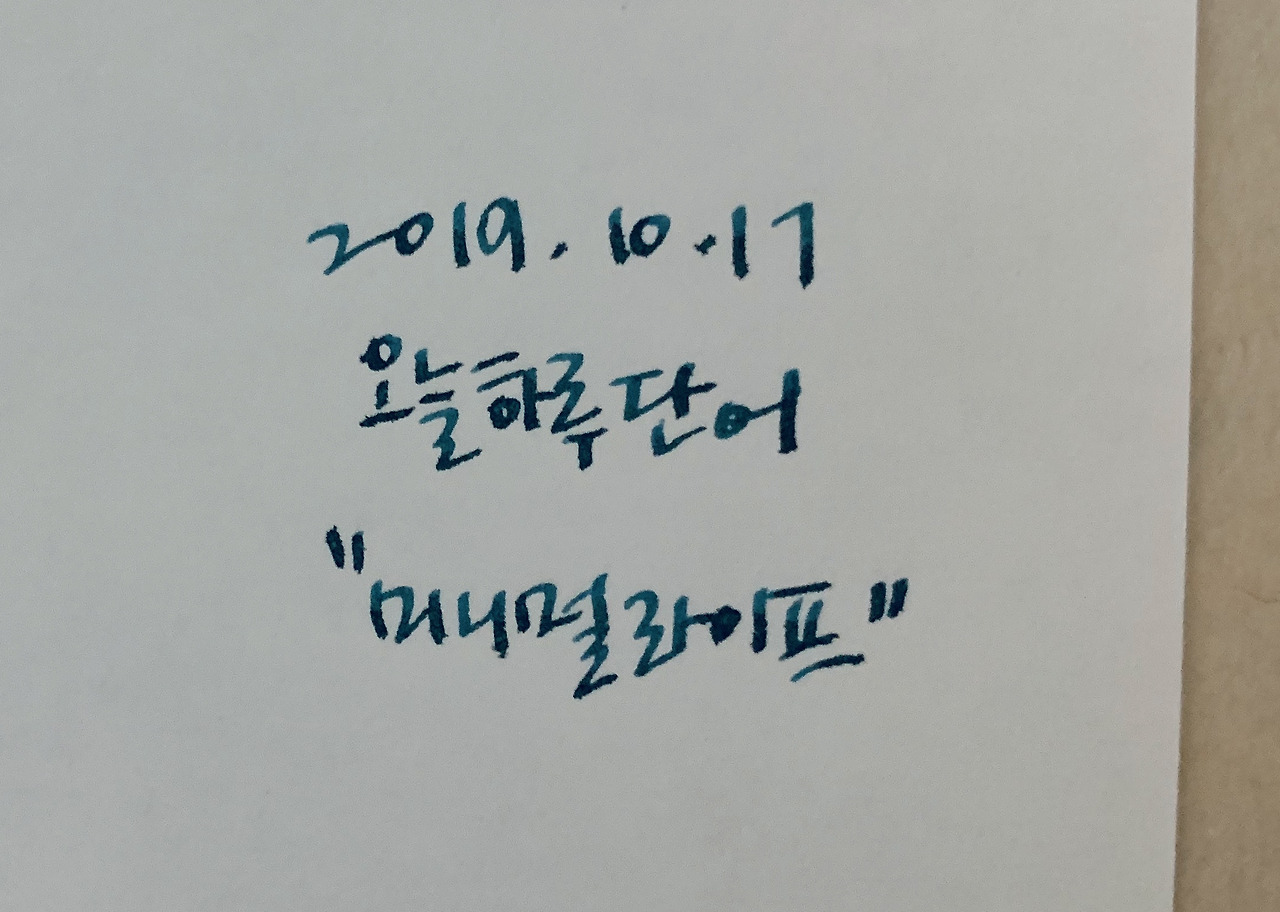 2019. 10. 17
오늘하루단어
"미니멀라이프"